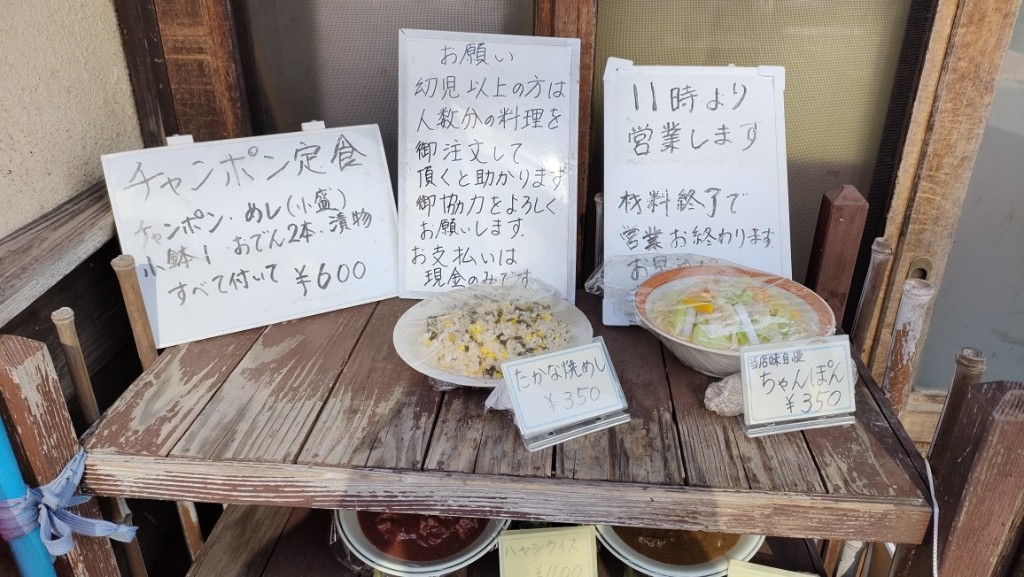 チャンポン定食
チャンポン・めし(小盛)
小鉢1 おでん2本・漬物
すべて付いて ¥600
お願い
幼児以上の方は
人数分の料理を
御注文して
頂くと助かります
御協力をよろしく
お願いします.
お支払いは
現金のみです
11時より
営業します
材料終了で
営業お終わります
たかな焼めし
¥350
当店味自慢
ちゃんぽん
¥350
ハヤシライス